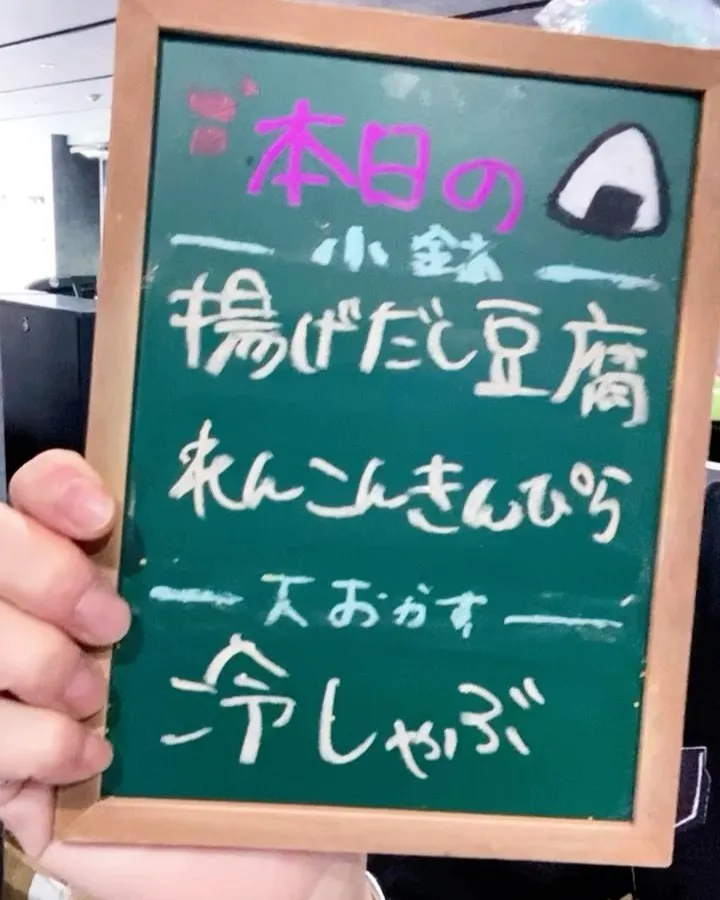 本日の
小鉢
揚げだし豆腐
れんこんきんぴら
大おかず
冷しゃぶ